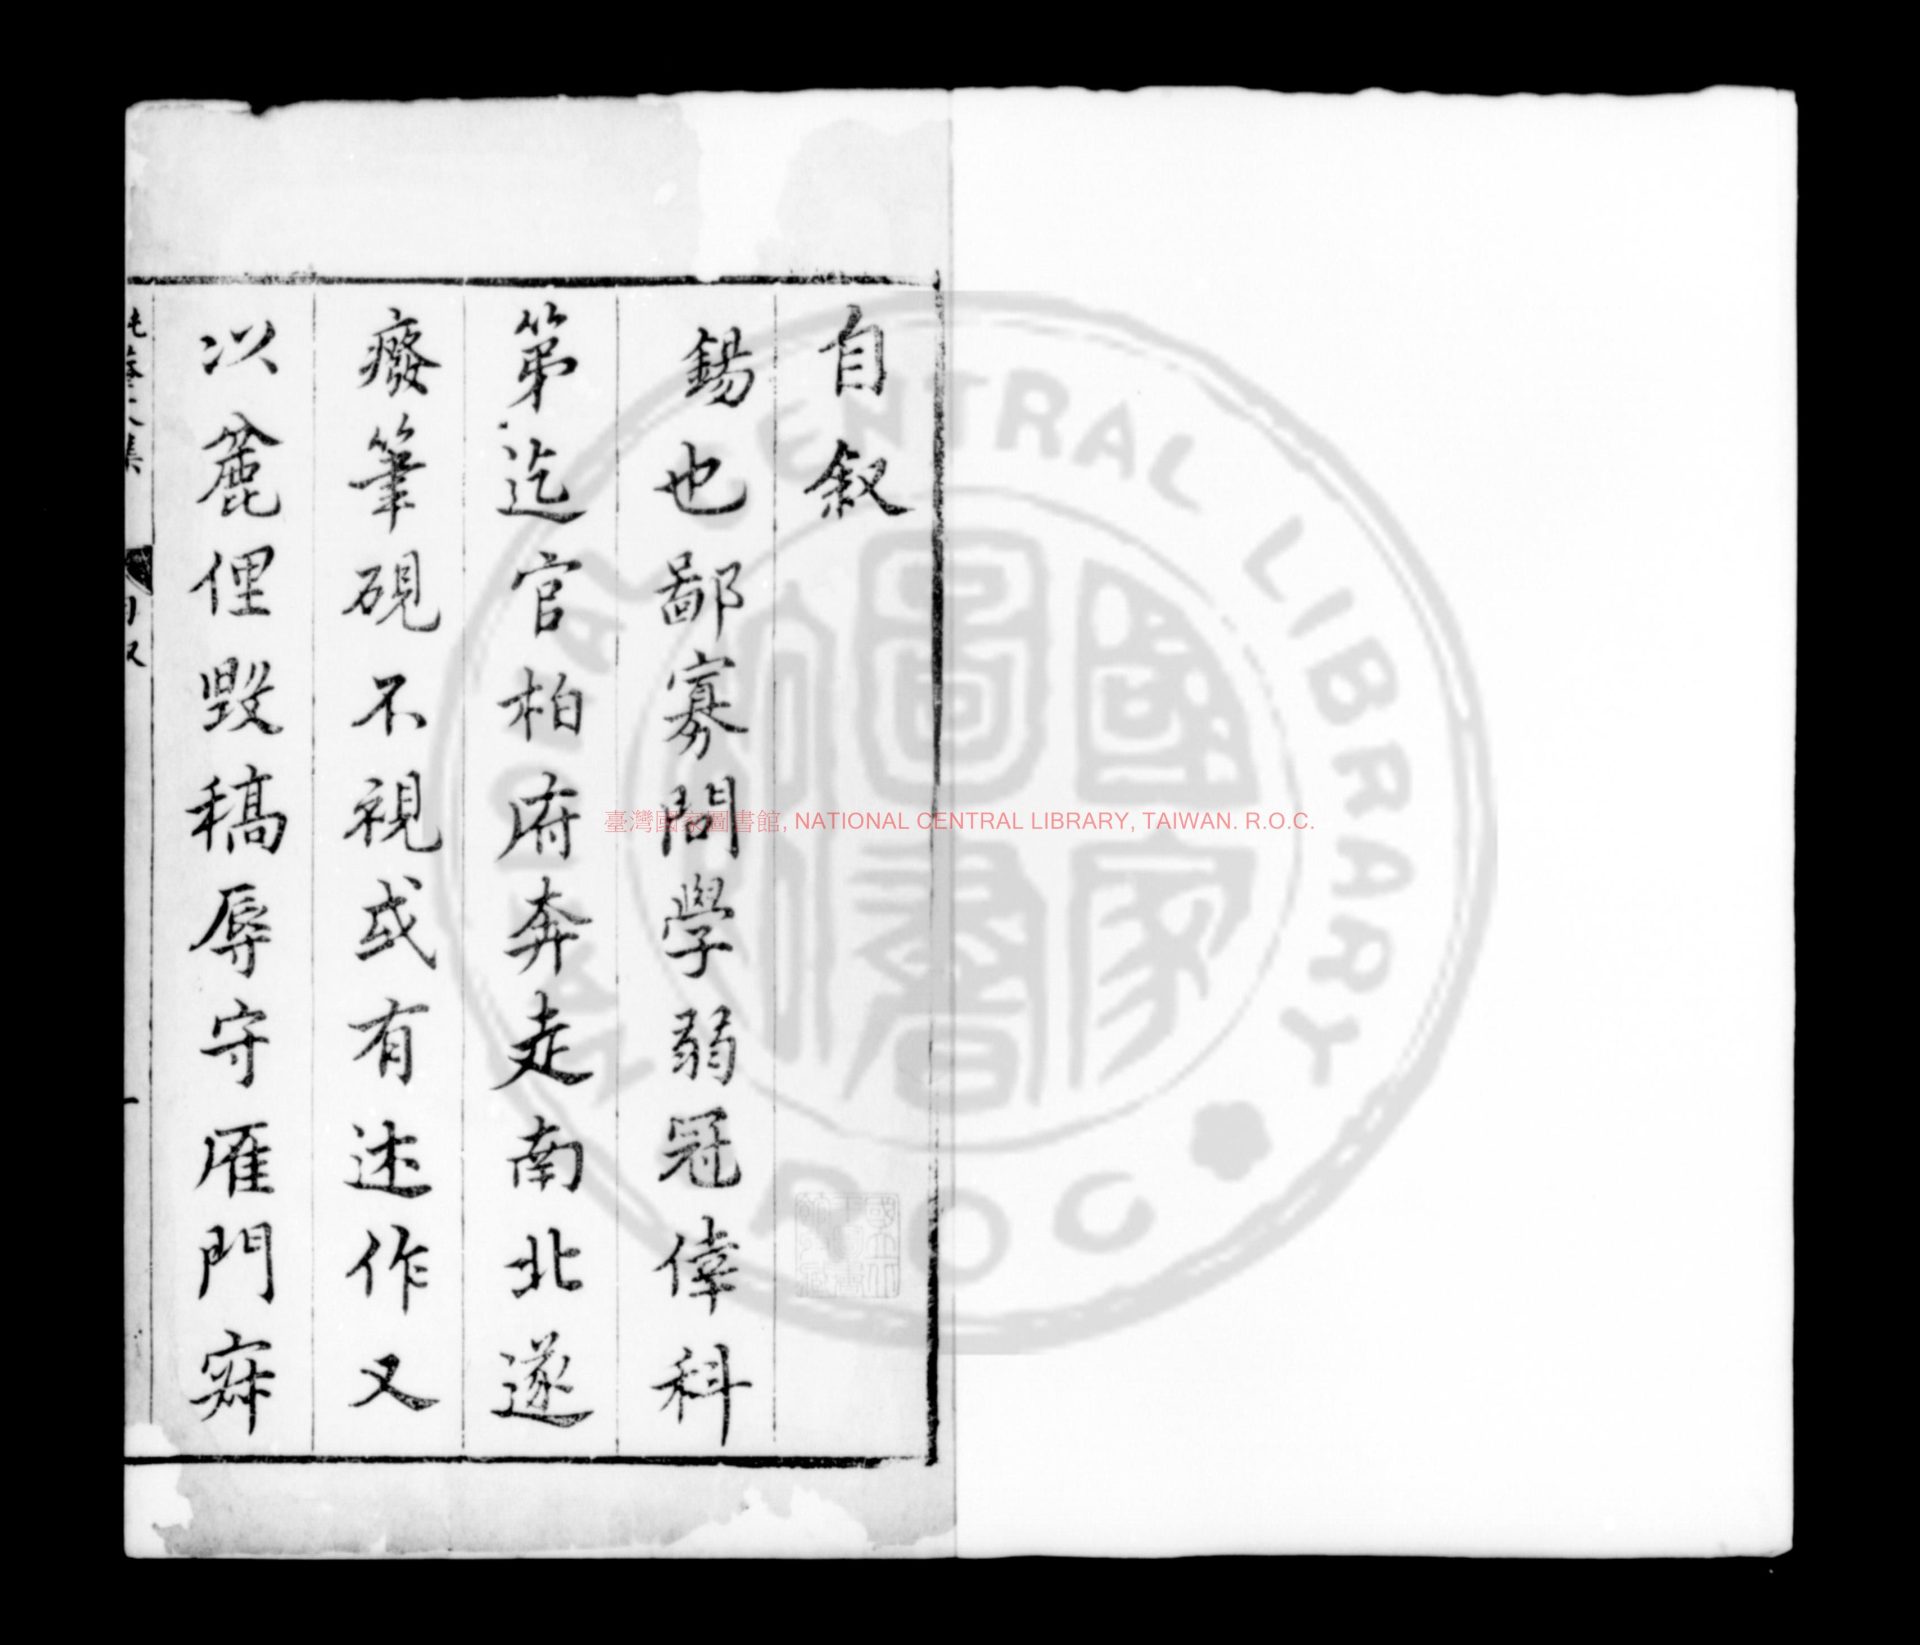 自叙
錫也鄙寡問學弱冠倖科
第迄官柏府奔走南北遂
癈筆硯不視或有述作又
以麄俚毀稿辱守雁門寂
文集
自叙
一
臺灣國家圖書館, NATIONAL CENTRAL LIBRARY, TAIWAN. R.O.C.
NATIONAL CENTRAL LIBRARY
R O C
國家圖書館